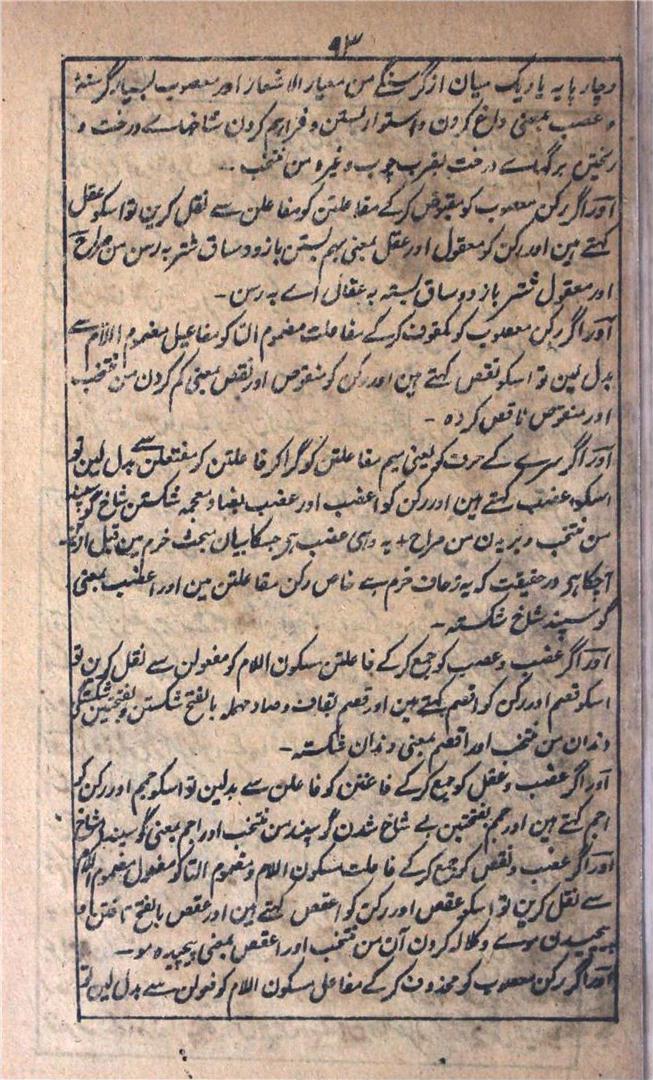 ۹۳
وچارپایہ باریک میان از گرسنگی من معیار الاشعار اور معصوب بسیار گرسنہ
و عصب بمعنی داغ کردن و استوار بستن و فراہم کردن شاخہاے درخت و
ریختن برگہاے درخت بضرب چوب وغیرہ من منتخب ۔۔
اور اگر رکن معصوب کو مقبوض کرکے مفاعلتن کو مفاعلن سے نقل کرین تو اسکو عقل
کہتے ہین اور رکن کو معقول اور عقل بمعنی بہم بستن بازو و ساق شتر بہ رسن من صراح
اور معقول شتر بازو و ساق بستہ بہ عقال اے بہ رسن ۔
اور اگر رکن معصوب کو مکفوف کرکے مفاعلت مضموم التا کو مفاعیل مضموم اللام سے
بدل لین تو اسکو نقص کہتے ہین اور رکن کو منقوص اور نقص بمعنی کم کردن من منتخب
اور منقوص ناقص کردہ ۔
اور اگر سرے کے حرف کو یعنی میم مفاعلتن کو گرا کر فاعلتن کو مفتعلن سے بدل لین تو
اسکو عضب کہتے ہین اور رکن کو اعضب اور عضب بضاد معجمہ شکستن شاخ گوسپند
من منتخب و بریدن من صراح + یہ وہی عضب ہے جسکا بیان بحث خرم مین قبل ازین
آچکا ہے در حقیقت کہ یہ زحاف خرم ہے خاص رکن مفاعلتن مین اور اعضب بمعنی
گوسپند شاخ شکستہ ۔
اور اگر عضب و عصب کو جمع کرکے فاعلتن سکون اللام کو مفعولن سے نقل کرین تو
اسکو قصم اور رکن کو اقصم کہتے ہین اور قصم بقاف و صاد مہملہ بالفتح شکستن و بفتحتین شکستگی
دندان من منتخب اور اقصم بمعنی دندان شکستہ ۔
اور اگر عضب و عقل کو جمع کرکے فاعتن کو فاعلن سے بدلین تو اسکو جمم اور رکن کو
اجم کہتے ہین اور جمم بفتحتین بے شاخ شدن گوسپند من منتخب اور اجم بمعنی گوسپند بے شاخ
اور اگر عضب و نقص کو جمع کرکے فاعلت سکون اللام و مضموم التا کو مفعول مضموم اللام
سے نقل کرین تو اسکو عقص اور رکن کو اعقص کہتے ہین اور عقص بالفتح تافتن و
پیچیدن موے و کلالہ کردن آن من منتخب اور اعقص بمعنی پیچیدہ مو ۔
اور اگر رکن معصوب کو محذوف کرکے مفاعل سکون اللام کو فعولن سے بدل لین تو